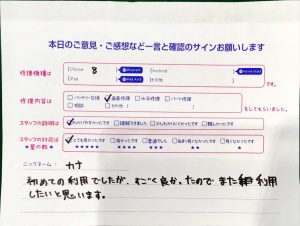 本日のご意見・ご感想など一言と確認のサインお願いします
修理機種は
iPhone 8
Android
iPad
その他
修理内容は
バッテリー交換 画面修理 水没修理 パーツ修理
相談 その他
をしてもらいました。
スタッフの説明は
わかりやすかったです 理解できました 少しわかりにくかったです 難しかったです
スタッフの対応は
★星の数★
とても良かったです 良かったです 普通でした あまり良くなかったです 良くなかったです
★★★★★ ★★★★ ★★★ ★★ ★
ニックネーム: カナ
初めての利用でしたが、すごく良かったのでまた利用
したいと思います。